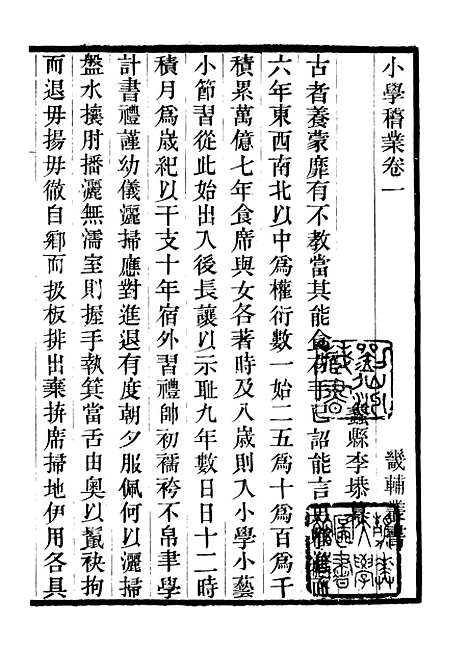 小學稽業卷一
畿輔叢書
蠡縣李塨
古者養蒙靡有不教當其能食右手已詔能言男唯
六年東西南北以中爲權衍數一始二五爲十爲百爲千
積累萬億七年食席與女各著時及八歲則入小學小藝
小節習從此始出入後長讓以示耻九年數日日十二時
積月爲歲紀以干支十年宿外習禮帥初襦袴不帛聿學
計書禮謹幼儀灑掃應對進退有度朝夕服佩何以灑掃
盤水攘肘播灑無濡室則握手執箕當舌由奧以鬛袂拘
而退毋揚毋徹自鄉而扱板排出棄拚席掃地伊用各具